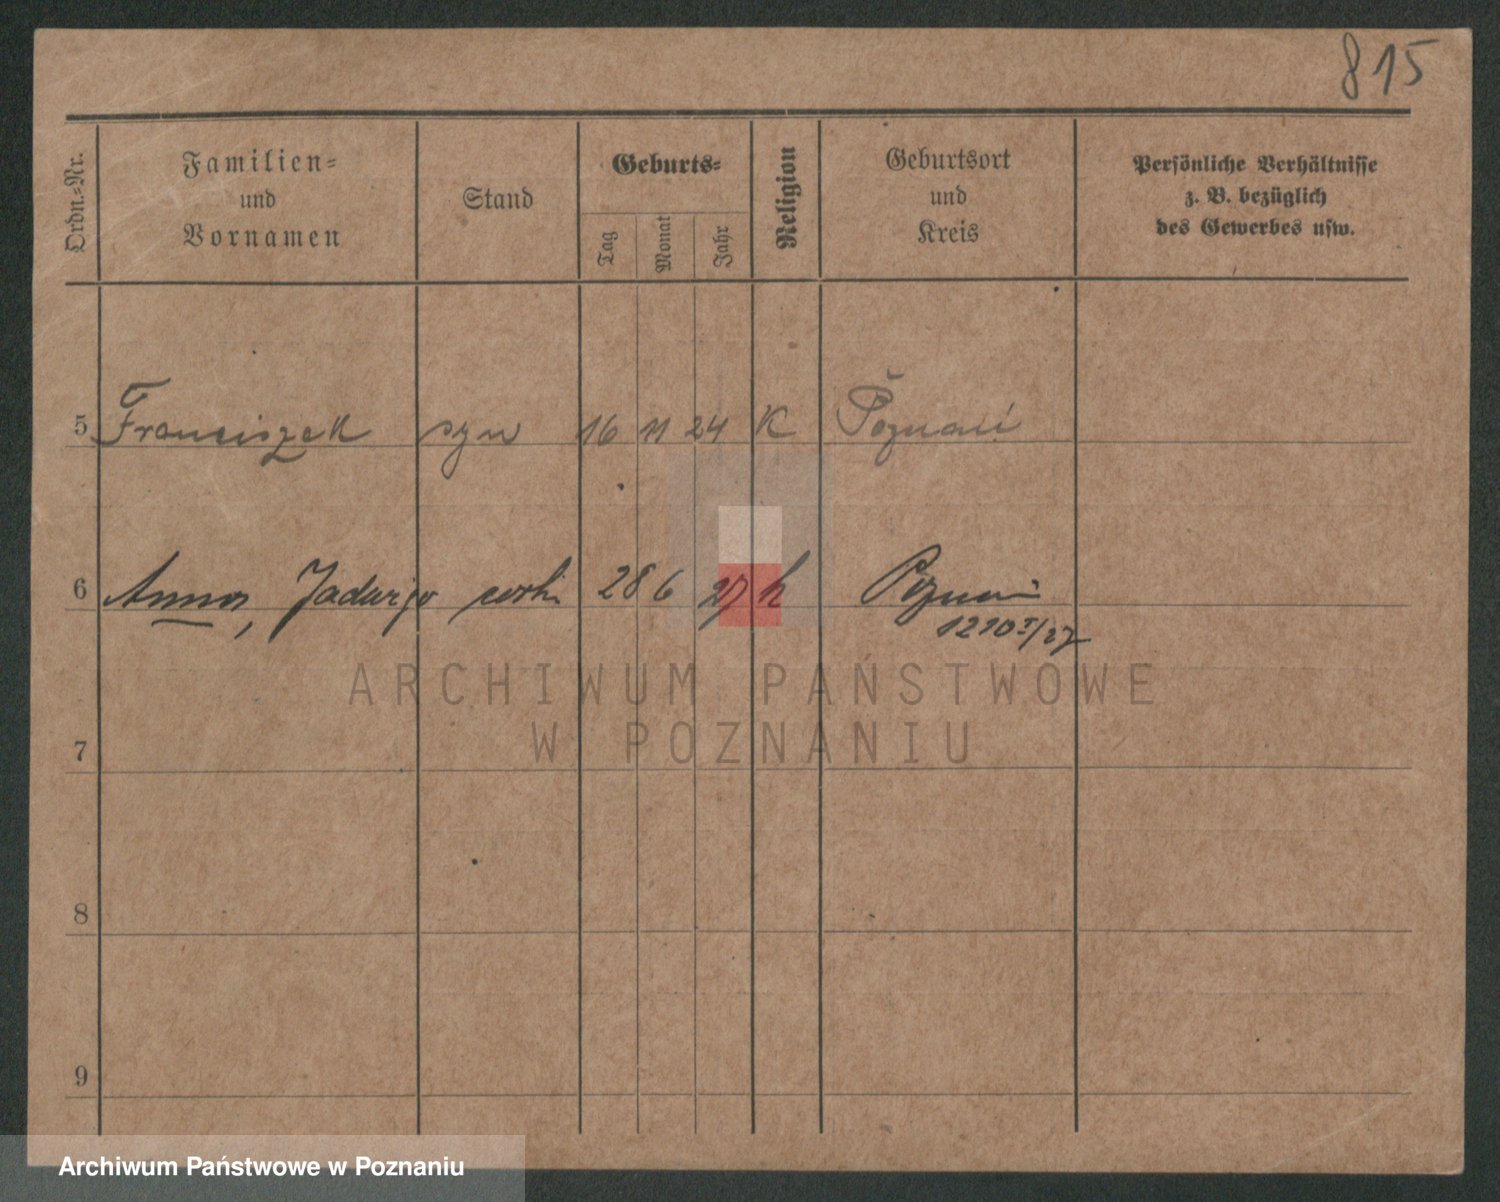 815
Ordn.-Nr.
Familien-
und
Vornamen
Stand
Geburts-
Tag
Monat
Jahr
Religion
Geburtsort
und
Kreis
Persönliche Verhältnisse
z. B. bezüglich
des Gewerbes usw.
5 Franciszek syn 16 11 24 K Poznań
6 Anna, Jadwiga 28 6 27 k Poznań
1210 I/27
ARCHIWUM PAŃSTWOWE
W POZNANIU
7
8
9
Archiwum Państwowe w Poznaniu